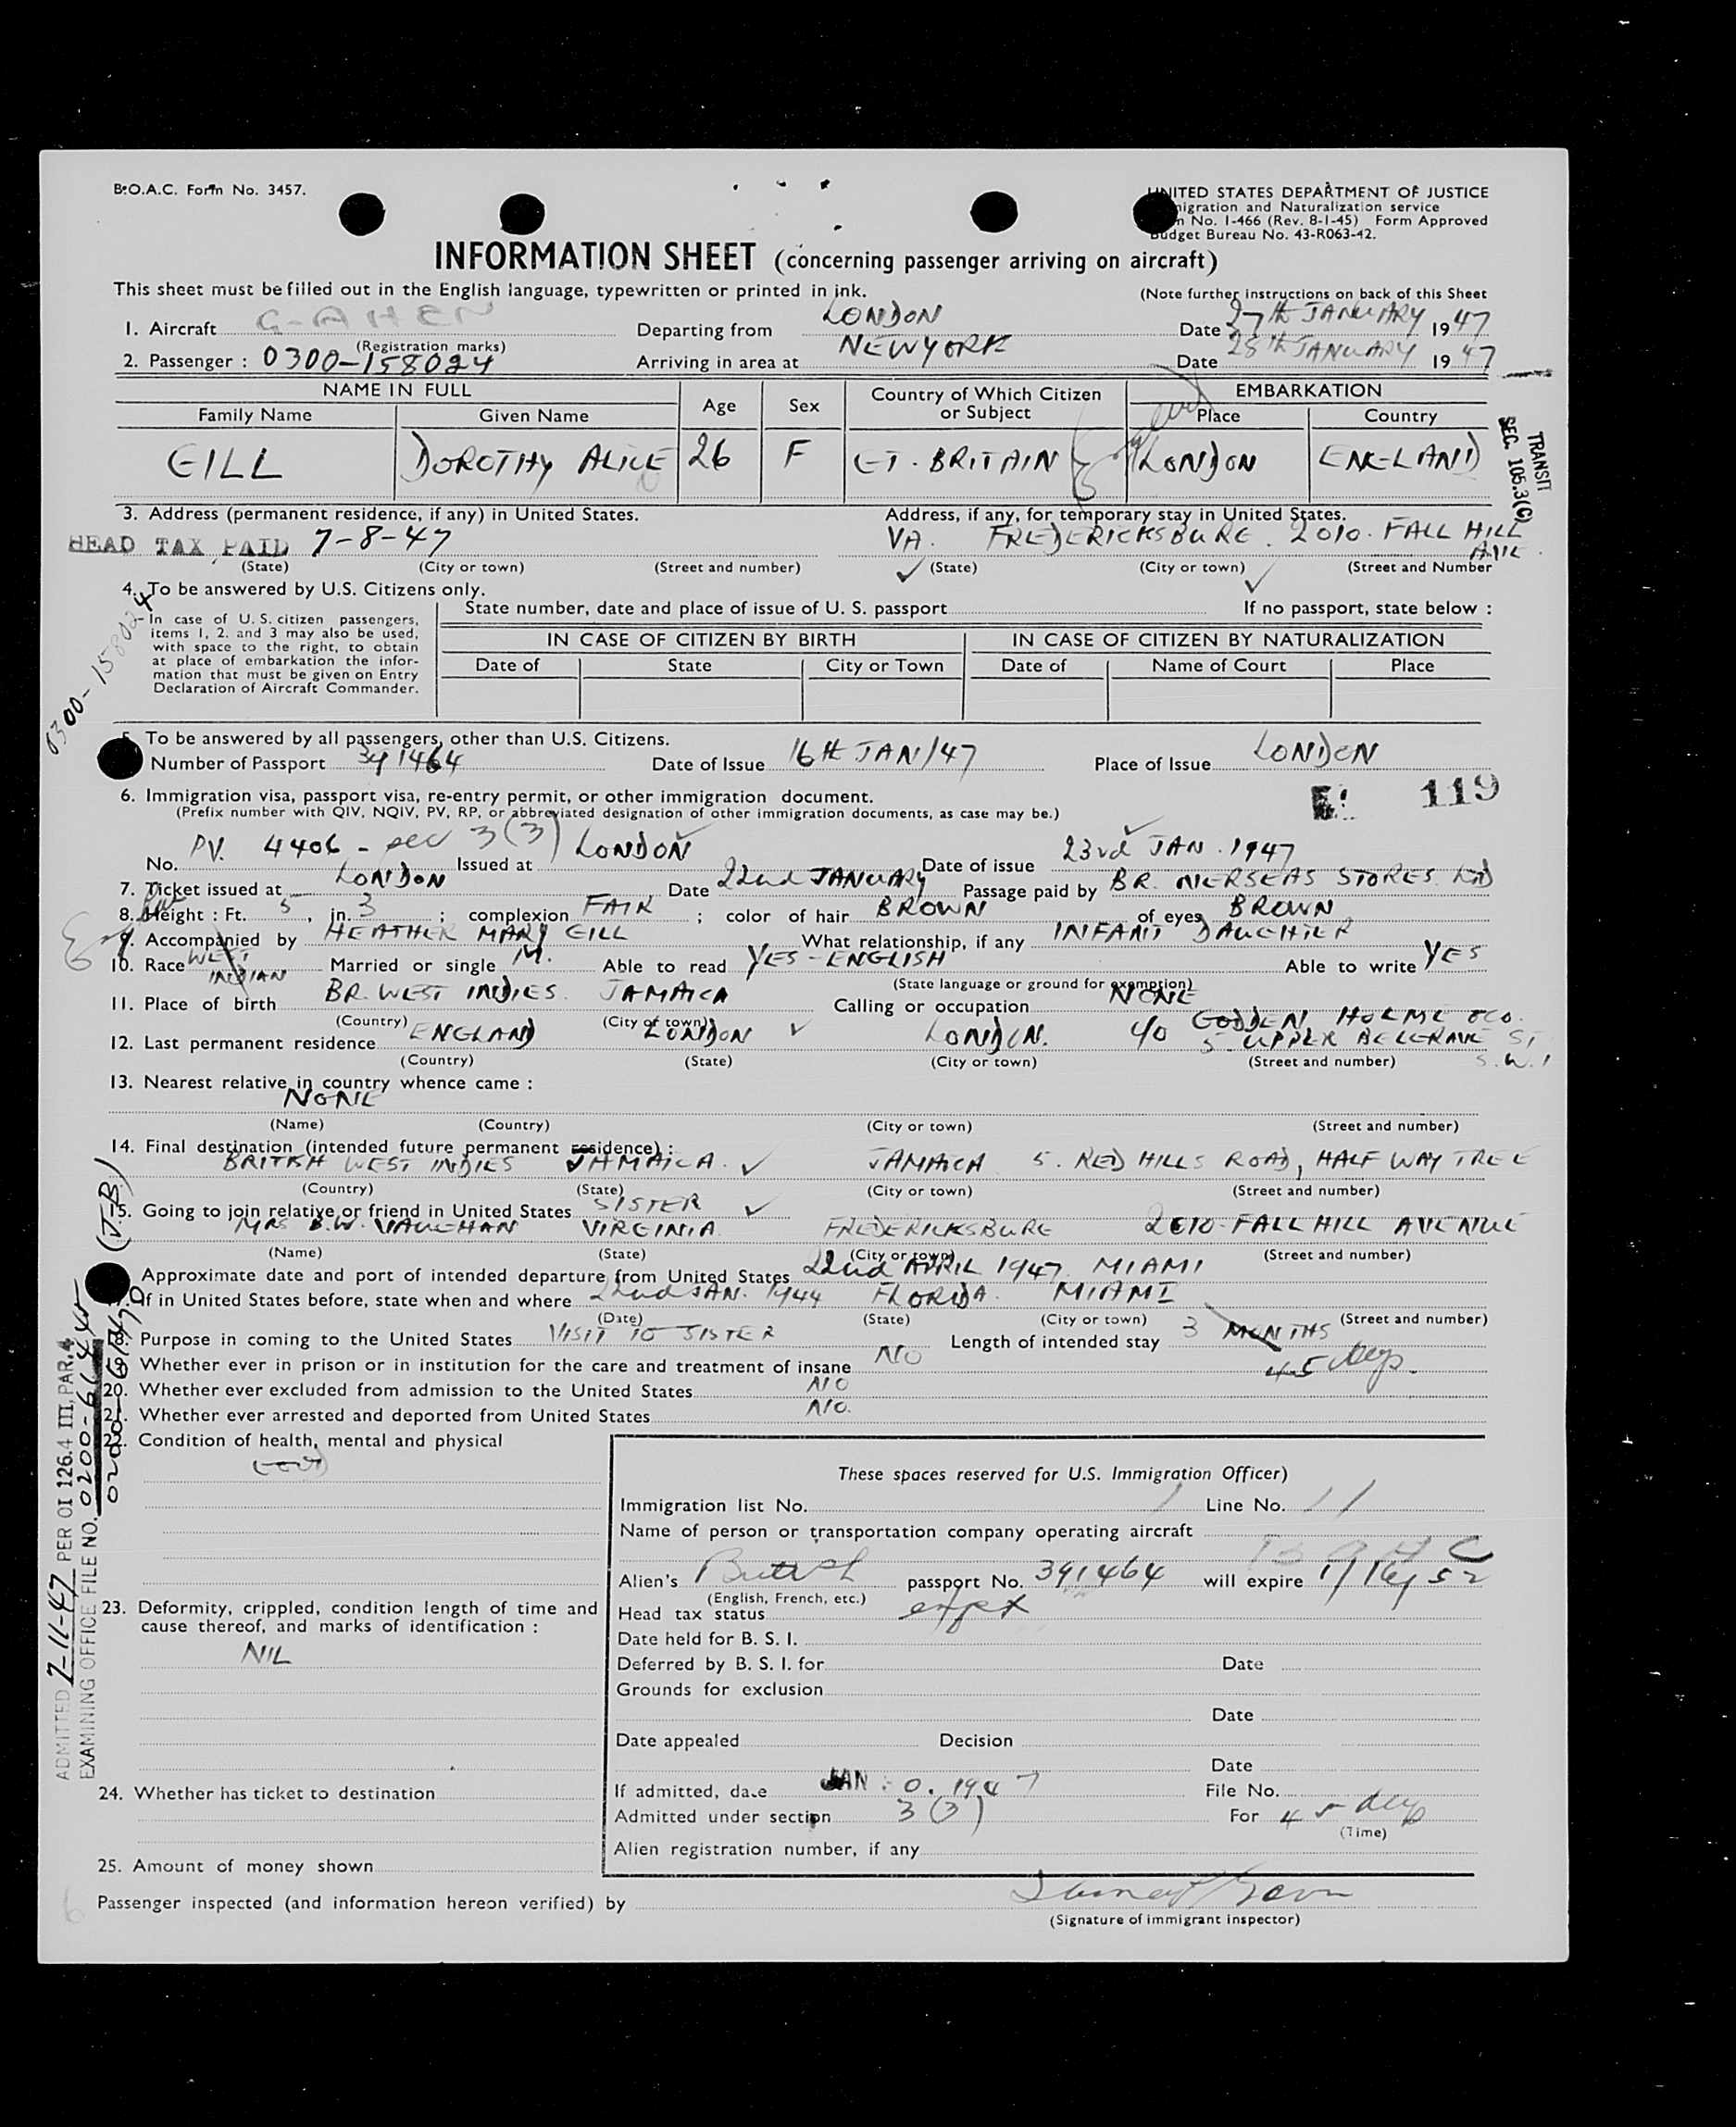 B.O.A.C. Form No. 3457.
UNITED STATES DEPARTMENT OF JUSTICE
igration and Naturalization service
No. I-466 (Rev. 8-1-45) Form Approved
Budget Bureau No. 43-R063-42.
INFORMATION SHEET (concerning passenger arriving on aircraft)
This sheet must be filled out in the English language, typewritten or printed in ink.
(Note further instructions on back of this Sheet
1. Aircraft G-AHEN Departing from LONDON Date 27th JANUARY 1947
(Registration marks)
2. Passenger : 0300-158024 Arriving in area at NEW YORK Date 28th JANUARY 1947
NAME IN FULL Age Sex Country of Which Citizen or Subject EMBARKATION
Family Name Given Name Place Country
GILL DOROTHY ALICE 26 F GT. BRITAIN LONDON ENGLAND
TRANSIT
SEC. 105.3(C)
3. Address (permanent residence, if any) in United States. Address, if any, for temporary stay in United States.
HEAD TAX PAID 7-8-47 VA. FREDERICKSBURG. 2010. FALL HILL AVE.
(State) (City or town) (Street and number) (State) (City or town) (Street and Number
4. To be answered by U.S. Citizens only.
0300-158024
In case of U.S. citizen passengers,
items 1, 2. and 3 may also be used,
with space to the right, to obtain
at place of embarkation the infor-
mation that must be given on Entry
Declaration of Aircraft Commander.
State number, date and place of issue of U. S. passport If no passport, state below :
IN CASE OF CITIZEN BY BIRTH IN CASE OF CITIZEN BY NATURALIZATION
Date of State City or Town Date of Name of Court Place
To be answered by all passengers, other than U.S. Citizens.
Number of Passport 391464 Date of Issue 16th JAN/47 Place of Issue LONDON
119
6. Immigration visa, passport visa, re-entry permit, or other immigration document.
(Prefix number with QIV, NQIV, PV, RP, or abbreviated designation of other immigration documents, as case may be.)
No. PV. 4406 - sec 3(3) Issued at LONDON Date of issue 23rd JAN. 1947
7. Ticket issued at LONDON Date 22nd JANUARY Passage paid by BR. OVERSEAS STORES LTD
8. Height : Ft. 5, in. 3 ; complexion FAIR ; color of hair BROWN of eyes BROWN
9. Accompanied by HEATHER MARY GILL What relationship, if any INFANT DAUGHTER
10. Race WEST INDIAN Married or single M. Able to read YES - ENGLISH Able to write YES
(State language or ground for exemption)
11. Place of birth BR. WEST INDIES. JAMAICA Calling or occupation NONE
(Country) (City or town)
12. Last permanent residence ENGLAND LONDON LONDON. c/o GODDEN HOLME & CO. 5 UPPER BELGRAVE ST S.W.1
(Country) (State) (City or town) (Street and number)
13. Nearest relative in country whence came :
NONE
(Name) (Country) (City or town) (Street and number)
14. Final destination (intended future permanent residence) :
BRITISH WEST INDIES JAMAICA. JAMAICA 5. RED HILLS ROAD, HALF WAY TREE
(Country) (State) (City or town) (Street and number)
15. Going to join relative or friend in United States SISTER
MRS B.W. VAUGHAN VIRGINIA FREDERICKSBURG 2010-FALL HILL AVENUE
(Name) (State) (City or town) (Street and number)
Approximate date and port of intended departure from United States 22nd APRIL 1947. MIAMI
If in United States before, state when and where 22nd JAN. 1944 FLORIDA. MIAMI
(Date) (State) (City or town) (Street and number)
18. Purpose in coming to the United States VISIT TO SISTER Length of intended stay 3 MONTHS
45 days.
Whether ever in prison or in institution for the care and treatment of insane NO
20. Whether ever excluded from admission to the United States NO
21. Whether ever arrested and deported from United States NO.
22. Condition of health, mental and physical
GOOD
23. Deformity, crippled, condition length of time and
cause thereof, and marks of identification :
NIL
24. Whether has ticket to destination
25. Amount of money shown
These spaces reserved for U.S. Immigration Officer)
Immigration list No. 1 Line No. 11
Name of person or transportation company operating aircraft
Alien's British passport No. 391464 will expire 1/16/52
(English, French, etc.)
Head tax status
Date held for B. S. I.
Deferred by B. S. I. for Date
Grounds for exclusion
Date
Date appealed Decision
Date
If admitted, date JAN 0. 1947 File No.
Admitted under section 3(3) For 45 days
(Time)
Alien registration number, if any
Passenger inspected (and information hereon verified) by
(Signature of immigrant inspector)
ADMITTED 7-11-47 PER OI 126.4 III, PAR. 4
EXAMINING OFFICE FILE NO.
(J-B)